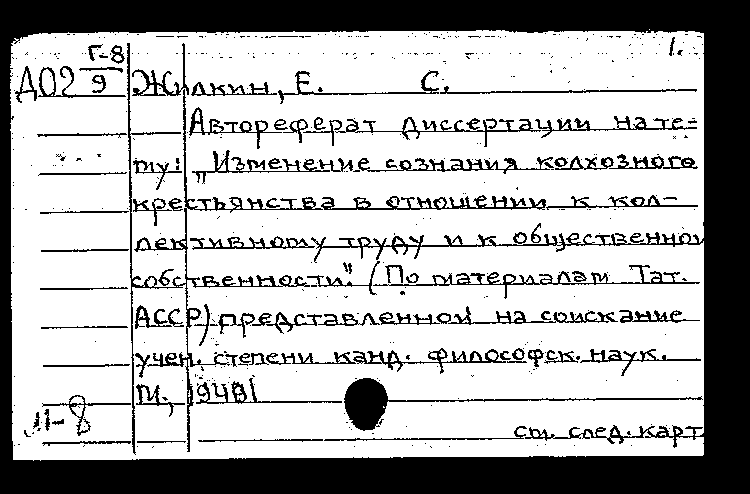 1.
Г-8
Д02 9 Жилкин, Е. С.
Автореферат диссертации на те=
му: „Изменение сознания колхозного
крестьянства в отношении к кол-
лективному труду и к общественной
собственности". (По материалам Тат.
АССР) представленной на соискание
учен. степени канд. философск. наук.
М.,
см. след. карт